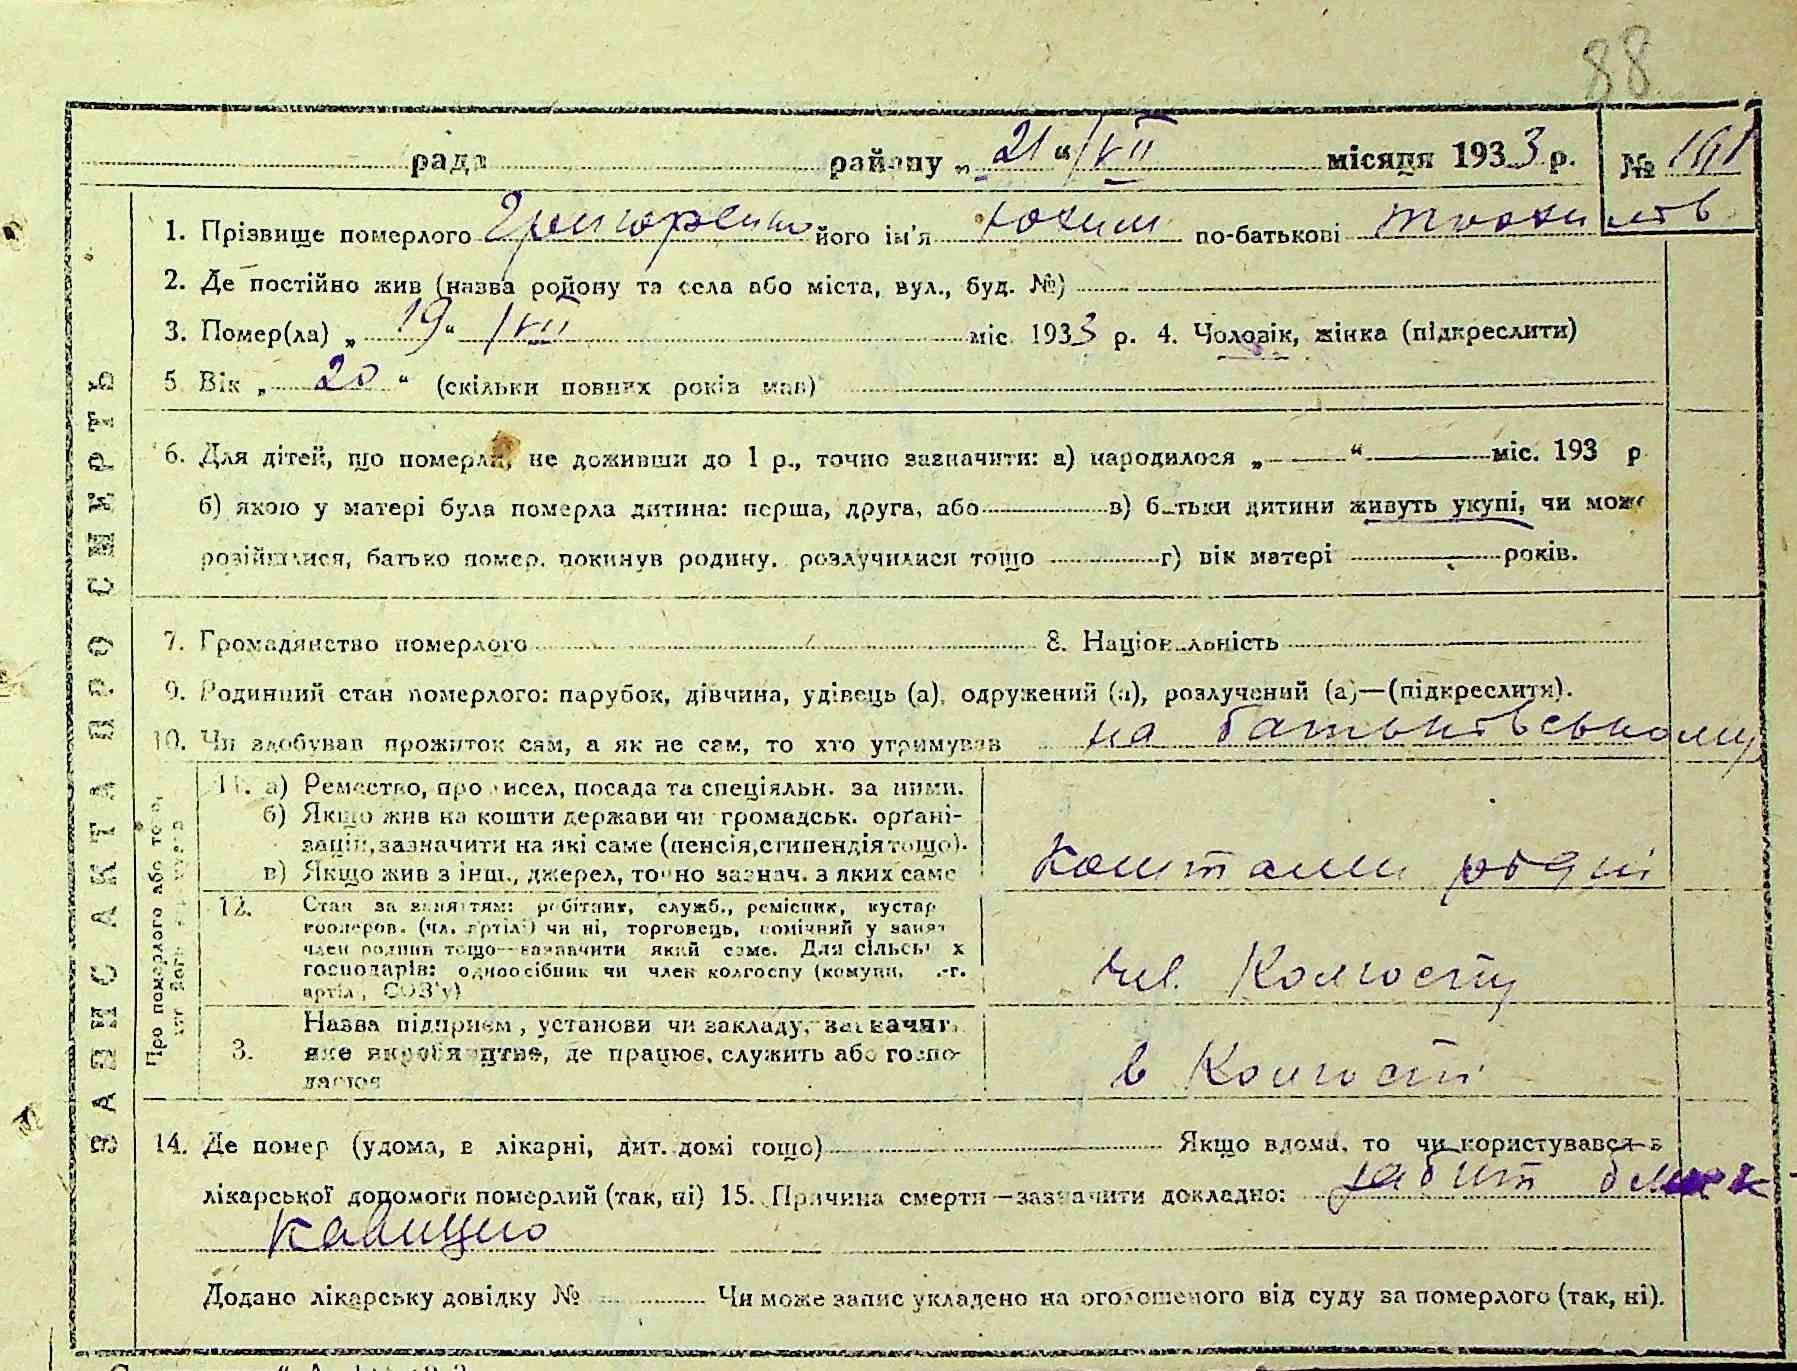 88
рада району „21“ /VII місяця 1933 р. № 191
1. Прізвище померлого Григоренко його ім'я Юхим по-батькові
2. Де постійно жив (назва району та села або міста, вул., буд. №)
3. Помер(ла) „19“ /VII міс. 1933 р. 4. Чоловік, жінка (підкреслити)
5 Вік „20“ (скільки повних років мав)
6. Для дітей, що померли, не доживши до 1 р., точно зазначити: а) народилося „ “ міс. 193 р
б) якою у матері була померла дитина: перша, друга, або в) батьки дитини живуть укупі, чи може
розійшлися, батько помер, покинув родину, розлучилися тощо г) вік матері років.
7. Громадянство померлого 8. Національність
9. Родинний стан померлого: парубок, дівчина, удівець (а), одружений (а), розлучений (а)—(підкреслити).
10. Чи здобував прожиток сам, а як не сам, то хто утримував на батьківському
ЗАПИС АКТА ПРО СМЕРТЬ
Про померлого або того,
11. а) Ремество, промисел, посада та спеціяльн. за ними.
б) Якщо жив на кошти держави чи громадськ. орґані-
зацій, зазначити на які саме (пенсія, стипендія тощо).
в) Якщо жив з інш., джерел, точно зазнач. з яких саме
коштами рідні
12. Стан за заняттям: робітник, служб., ремісник, кустар
кооперов. (чл. артілі) чи ні, торговець, помічний у занят
член родини тощо—зазначити який саме. Для сільськ х
господарів: одноосібник чи член колгоспу (комуни, с.-г.
артіл, СОЗ'у)
чл. Колгоспу
Назва підприєм, установи чи закладу, зазначит.
3. яке виробництво, де працює, служить або госпо-
дарює
в Колгоспі
14. Де помер (удома, в лікарні, дит. домі тощо) Якщо вдома, то чи користувався в
лікарської допомоги померлий (так, ні) 15. Причина смерти—зазначити докладно: забит блис-
кавицею
Додано лікарську довідку № Чи може запис укладено на оголошеного від суду за померлого (так, ні).